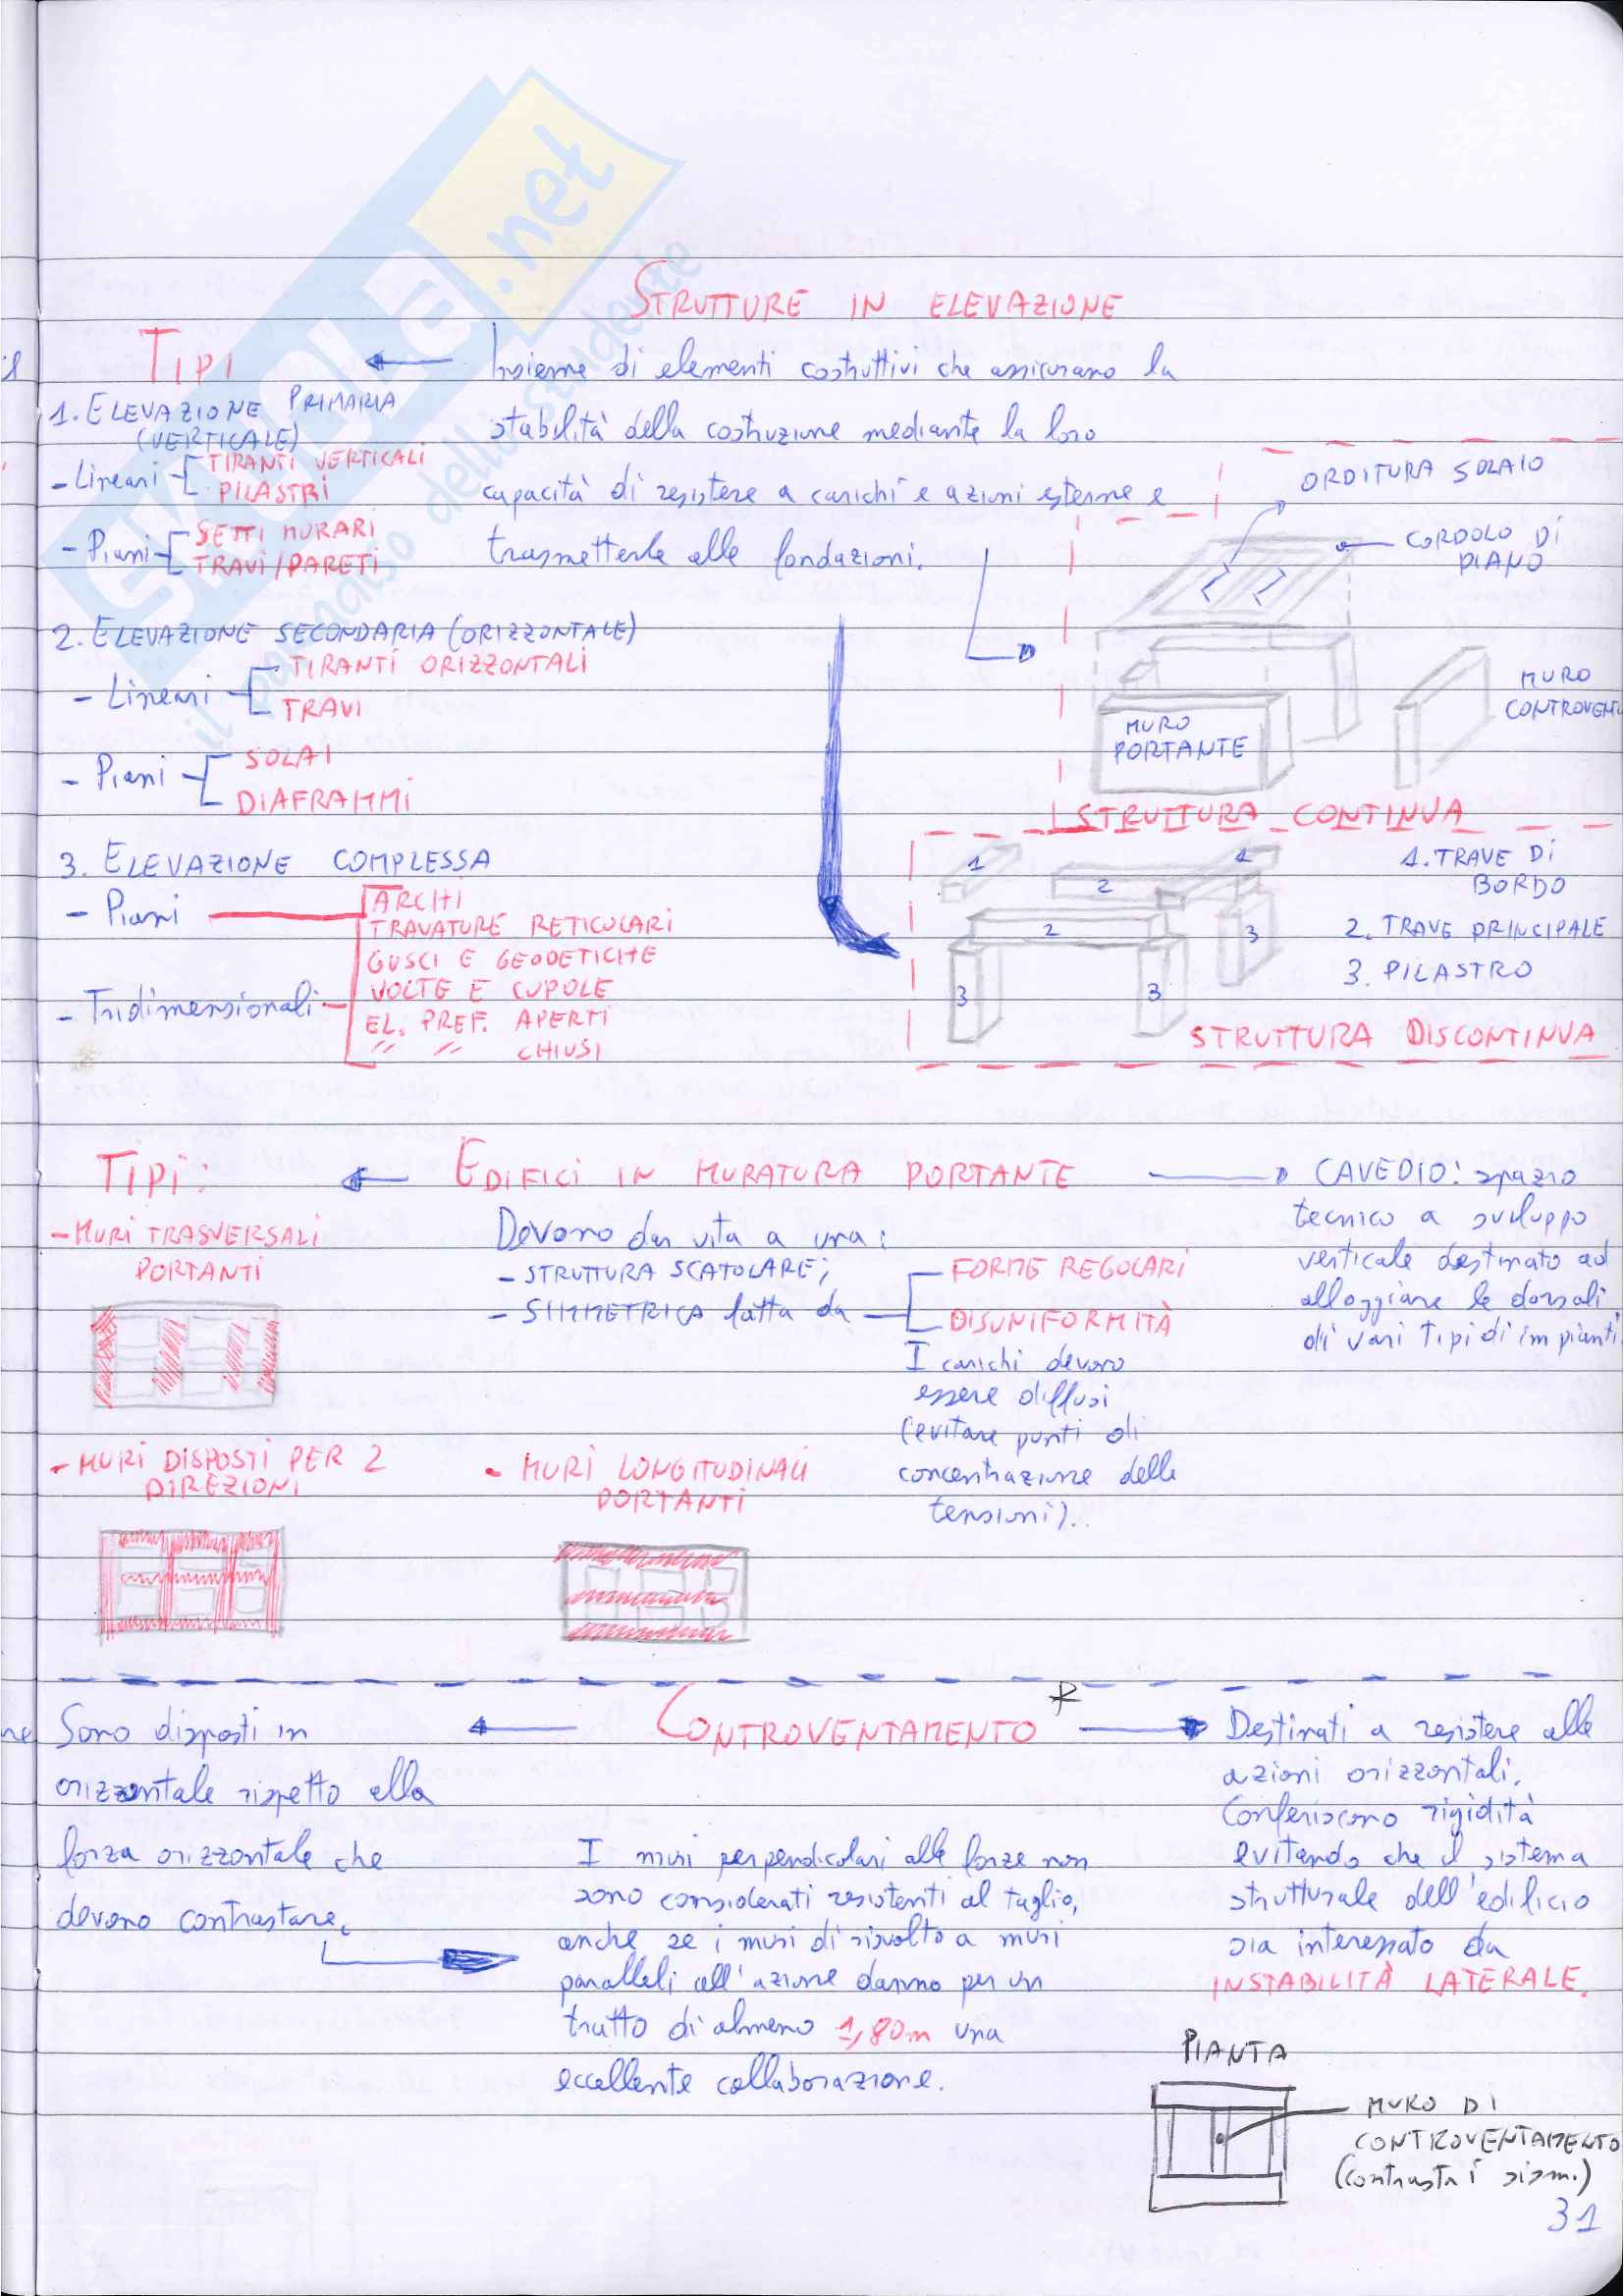 SKUOLA.net
il paradiso dello studente
STRUTTURE IN ELEVAZIONE
TIPI
Insieme di elementi costruttivi che assicurano la
stabilità della costruzione mediante la loro
capacità di resistere a carichi e azioni esterne e
trasmetterle alle fondazioni.
1. ELEVAZIONE PRIMARIA
(VERTICALE)
- Lineari
TIRANTI VERTICALI
PILASTRI
- Piani
SETTI MURARI
TRAVI/PARETI
2. ELEVAZIONE SECONDARIA (ORIZZONTALE)
- Lineari
TIRANTI ORIZZONTALI
TRAVI
- Piani
SOLAI
DIAFRAMMI
3. ELEVAZIONE COMPLESSA
- Piani
- Tridimensionali
ARCHI
TRAVATURE RETICOLARI
GUSCI E GEODETICHE
VOLTE E CUPOLE
EL. PREF. APERTI
" " CHIUSI
ORDITURA SOLAIO
CORDOLO DI
PIANO
MURO
PORTANTE
MURO
CONTROVENT
STRUTTURA CONTINUA
1
2
1
2
3
3
3
1. TRAVE DI
BORDO
2. TRAVE PRINCIPALE
3. PILASTRO
STRUTTURA DISCONTINUA
TIPI:
- MURI TRASVERSALI
PORTANTI
- MURI DISPOSTI PER 2
DIREZIONI
EDIFICI IN MURATURA PORTANTE
Devono dar vita a una:
- STRUTTURA SCATOLARE;
- SIMMETRICA fatta da
FORME REGOLARI
DISUNIFORMITÀ
I carichi devono
essere diffusi
(evitare punti di
concentrazione delle
tensioni).
- MURI LONGITUDINALI
PORTANTI
CAVEDIO: spazio
tecnico a sviluppo
verticale destinato ad
alloggiare le dorsali
di vari tipi di impianti.
CONTROVENTAMENTO *
Sono disposti in
orizzontale rispetto alla
forza orizzontale che
devono contrastare.
I muri perpendicolari alle forze non
sono considerati resistenti al taglio,
anche se i muri di risvolto a muri
paralleli all'azione danno per un
tratto di almeno 1,80m una
eccellente collaborazione.
Destinati a resistere alle
azioni orizzontali.
Conferiscono rigidità
evitando che il sistema
strutturale dell'edificio
sia interessato da
INSTABILITÀ LATERALE.
PIANTA
MURO DI
CONTROVENTAMENTO
(contrasta i sism.)
31